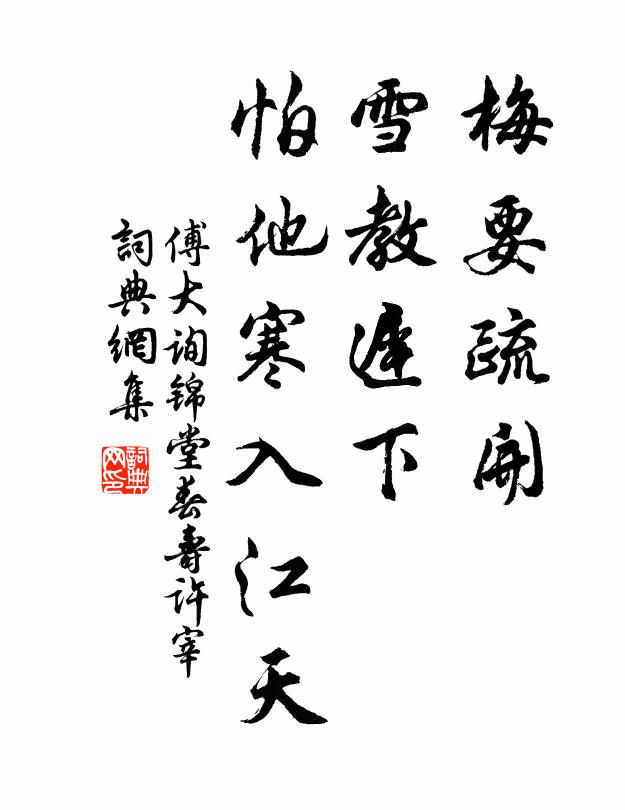 梅要疏開
雪教遲下
怕他寒入江天
傅大询锦堂春壽許宰
詞典網集
詞典网印